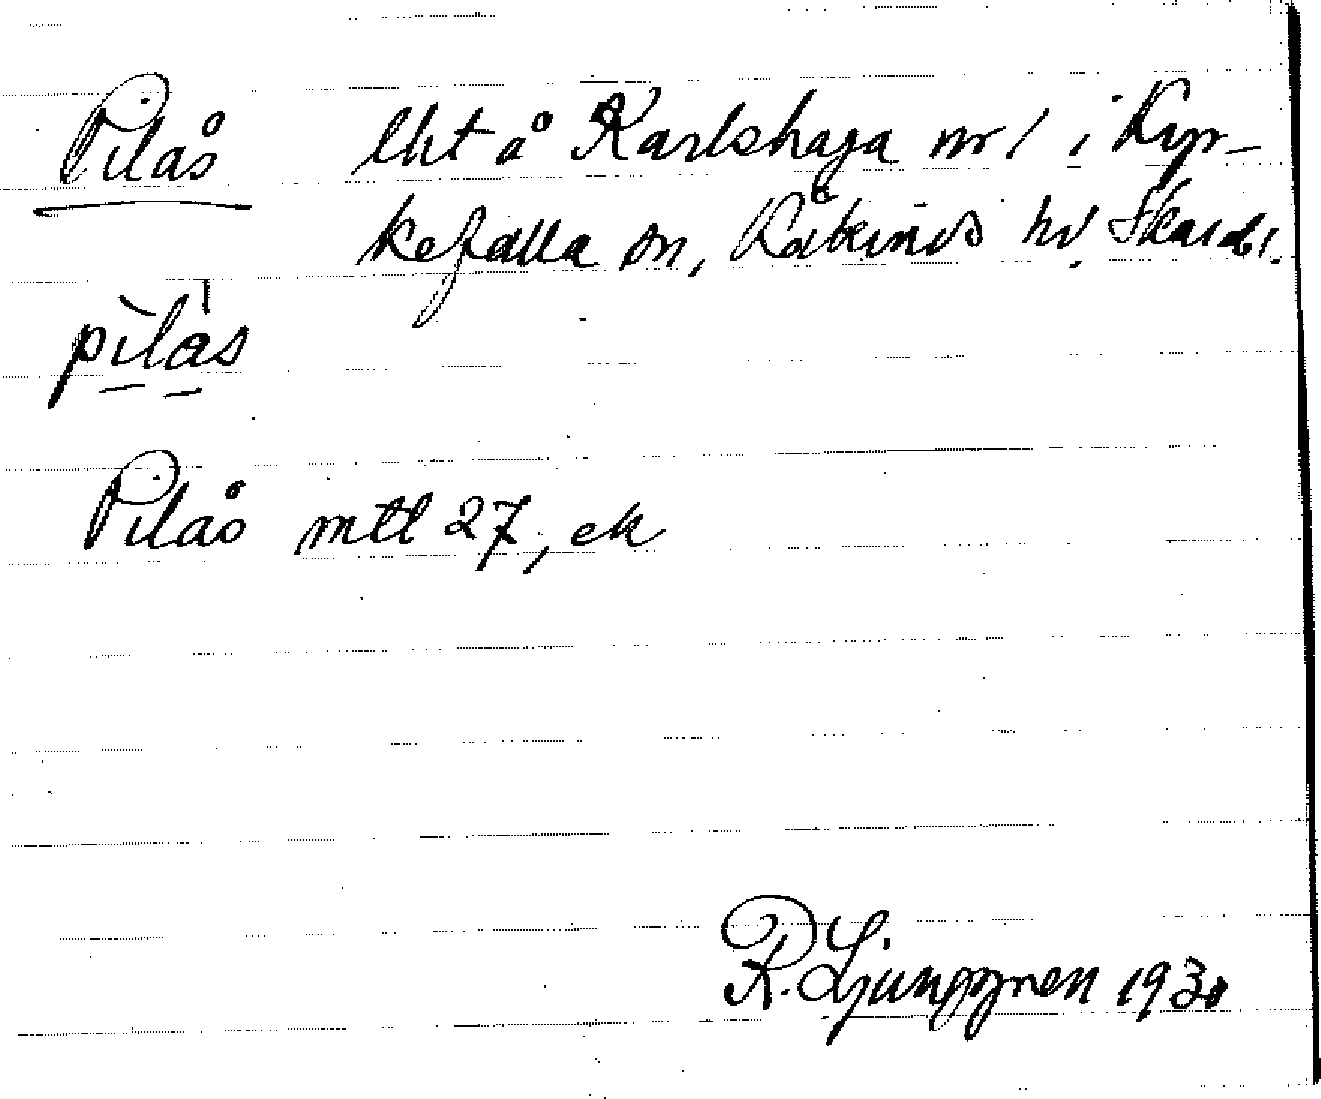 Pilås lht å Karlshaga nr 1 i Kyr-
kefalla sn, Kåkinds hd. Skarabl.
pìlås
Pilås mtl 27, ek
R. Ljunggren 1930